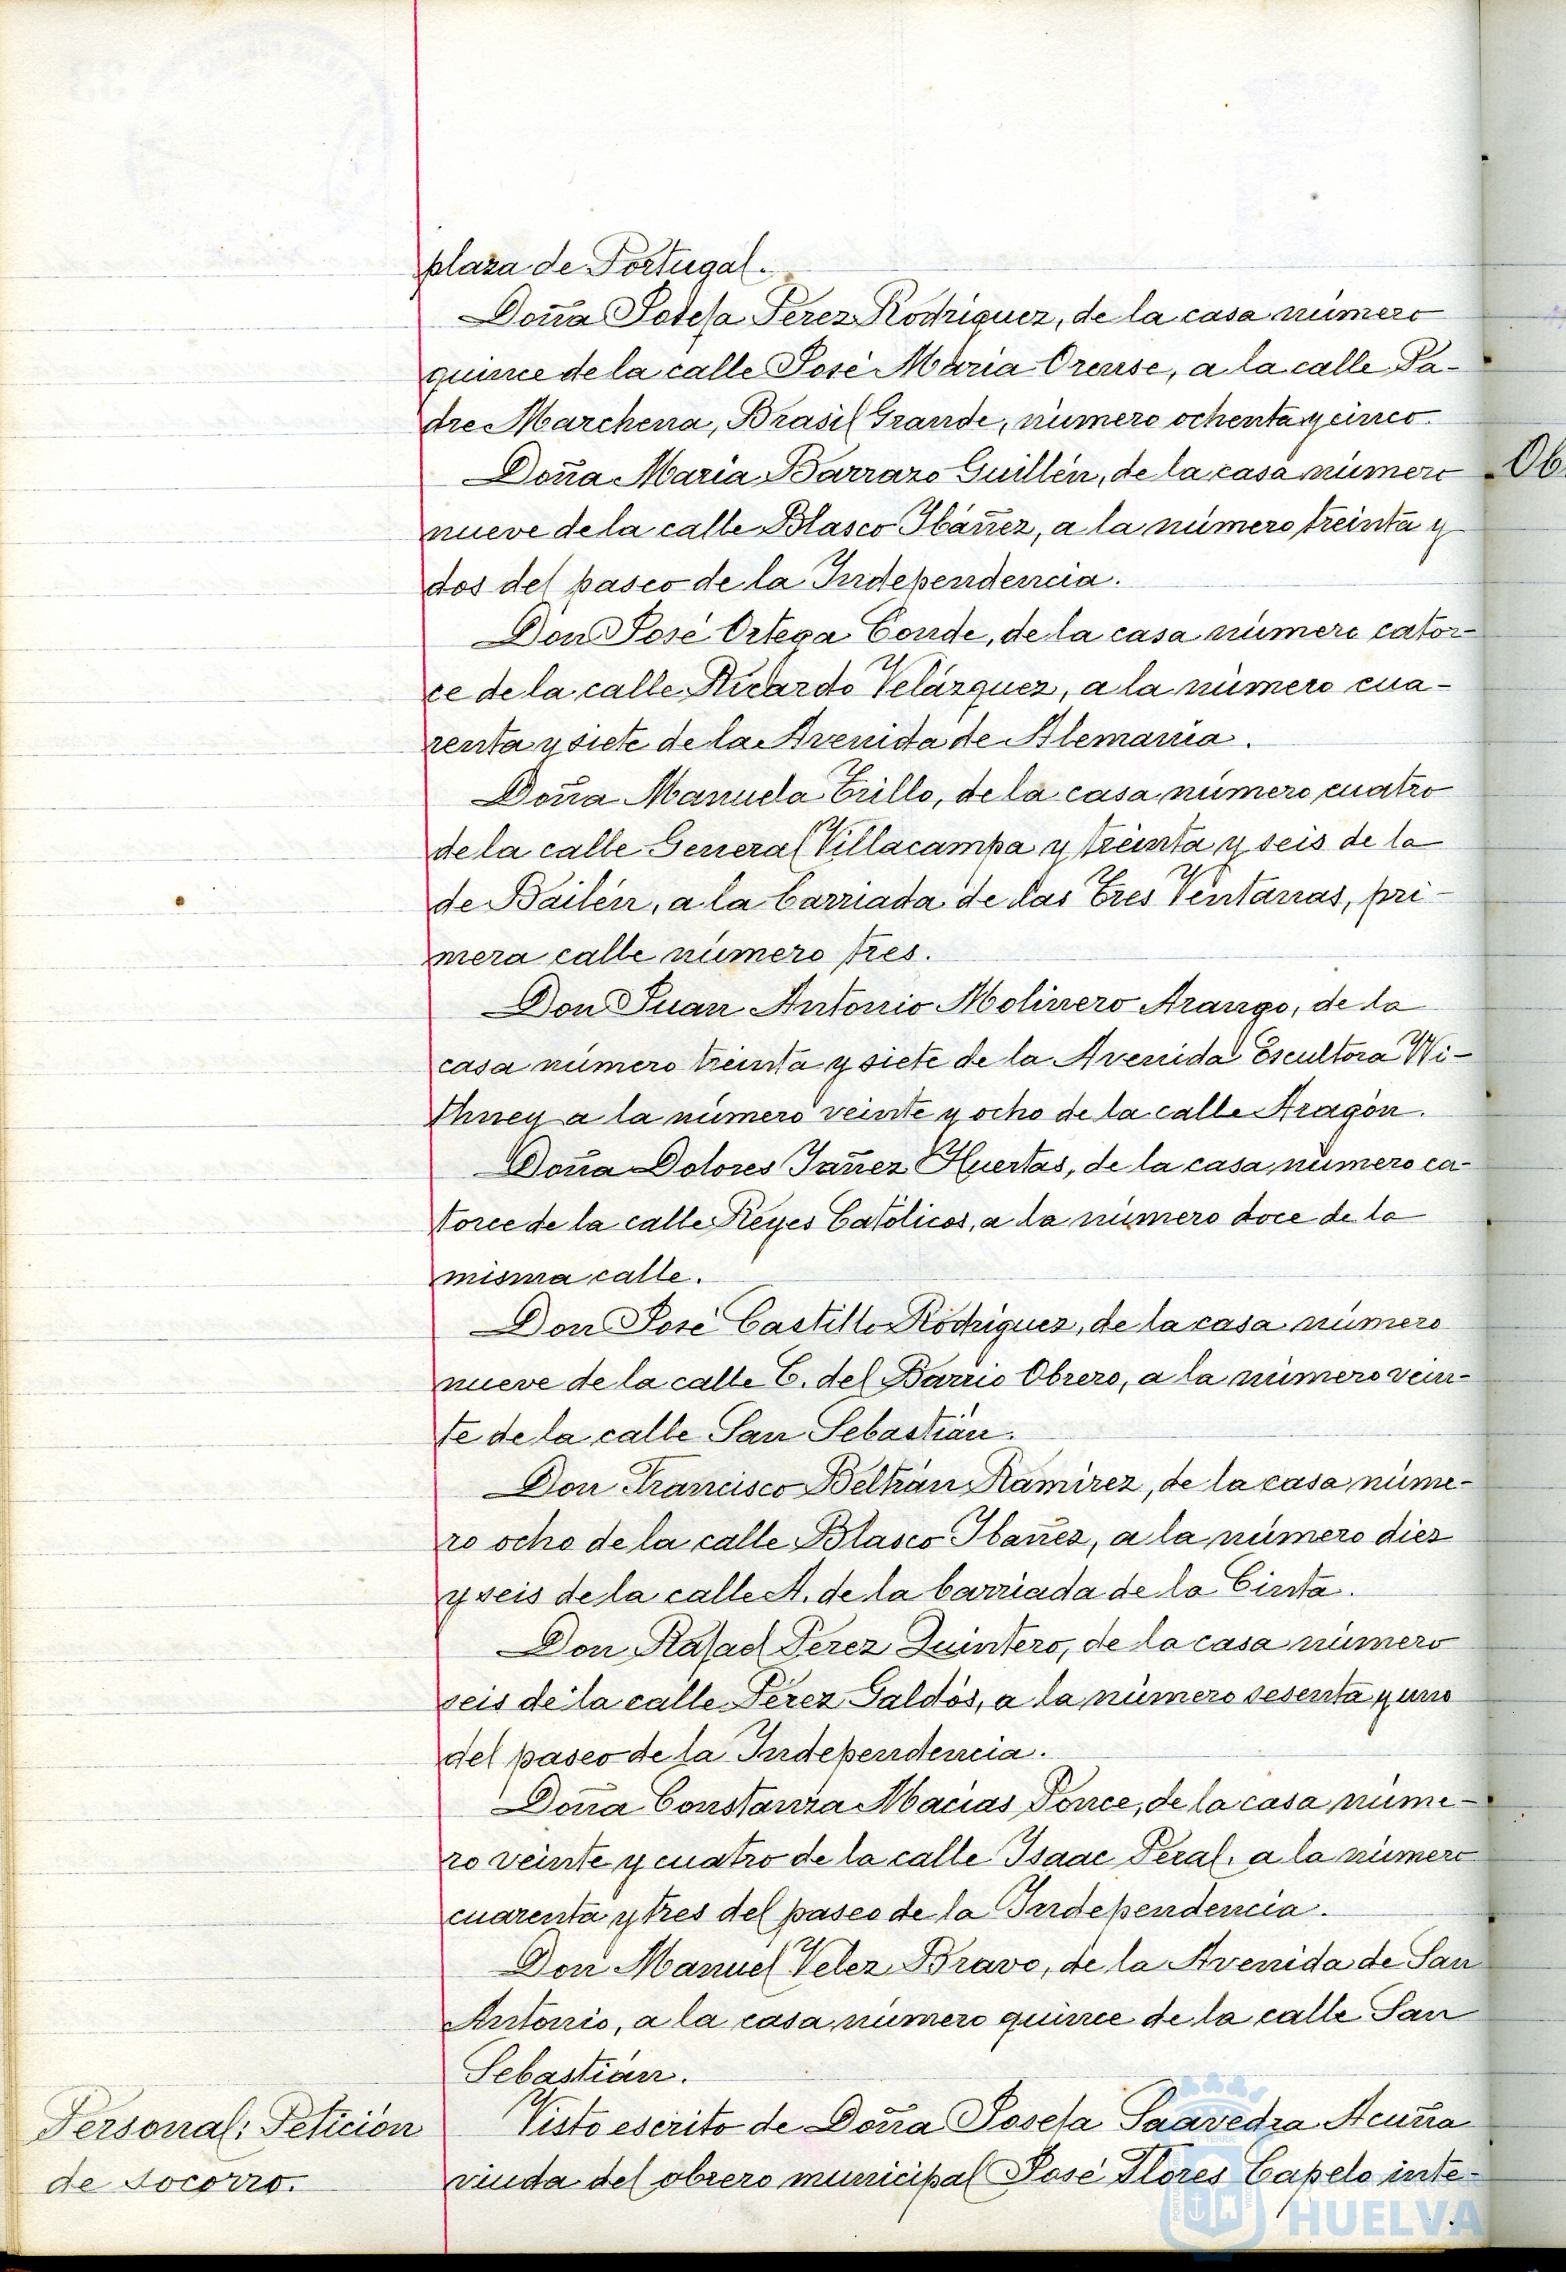 plaza de Portugal.
Doña Josefa Perez Rodriguez, de la casa número
quince de la calle José Maria Orense, a la calle Pa-
dre Marchena, Brasil Grande, número ochenta y cinco.
Doña Maria Barrazo Guillén, de la casa número
Ob
nueve de la calle Blasco Ibáñez, a la número treinta y
dos del paseo de la Independencia.
Don José Ortega Conde, de la casa número cator-
ce de la calle Ricardo Velázquez, a la número cua-
renta y siete de la Avenida de Alemania.
Doña Manuela Trillo, de la casa número cuatro
de la calle General Villacampa y treinta y seis de la
de Bailén, a la barriada de las Tres Ventanas, pri-
mera calle número tres.
Don Juan Antonio Molinero Arango, de la
casa número treinta y siete de la Avenida Escultora Wi-
thney a la número veinte y ocho de la calle Aragón.
Doña Dolores Iañez Huertas, de la casa número ca-
torce de la calle Reyes Católicos, a la número doce de la
misma calle.
Don José Castillo Rodriguez, de la casa número
nueve de la calle C. del Barrio Obrero, a la número vein-
te de la calle San Sebastián.
Don Francisco Beltrán Ramirez, de la casa núme-
ro ocho de la calle Blasco Ibañez, a la número diez
y seis de la calle A. de la barriada de la Cinta.
Don Rafael Perez Quintero, de la casa número
seis de la calle Pérez Galdós, a la número sesenta y uno
del paseo de la Independencia.
Doña Constanza Macias Ponce, de la casa núme-
ro veinte y cuatro de la calle Isaac Peral, a la número
cuarenta y tres del paseo de la Independencia.
Don Manuel Velez Bravo, de la Avenida de San
Antonio, a la casa número quince de la calle San
Sebastián.
Personal: Petición
de socorro.
Visto escrito de Doña Josefa Saavedra Acuña
viuda del obrero municipal José Flores Capelo inte-
HUELVA